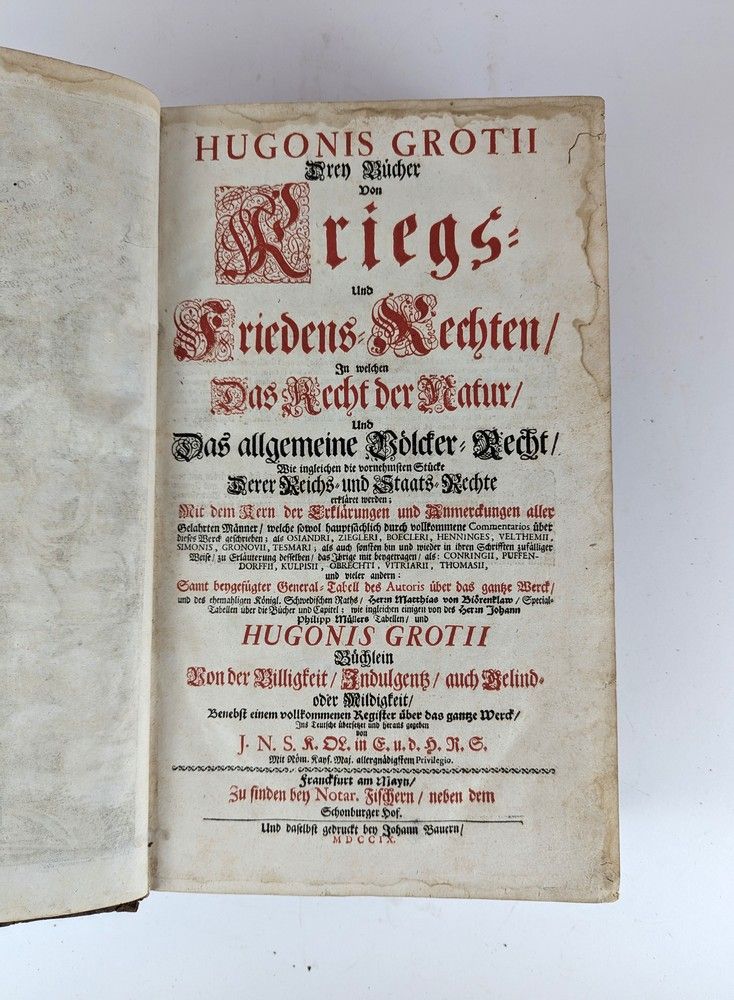 HUGONIS GROTII
Drey Bücher
Von
Kriegs-
Und
Friedens-Rechten/
In welchen
Das Recht der Natur/
Und
Das allgemeine Völcker-Recht/
Wie ingleichen die vornehmsten Stücke
Derer Reichs- und Staats-Rechte
erkläret werden;
Mit dem Kern der Erklärungen und Anmerckungen aller
Gelahrten Männer/ welche sowol hauptsächlich durch vollkommene Commentarios über
dieses Werck geschrieben; als OSIANDRI, ZIEGLERI, BOECLERI, HENNINGES, VELTHEMII,
SIMONIS, GRONOVII, TESMARI; als auch sonsten hin und wieder in ihren Schrifften zufälliger
Weise/ zu Erläuterung desselben/ das Ihrige mit beygetragen/ als: CONRINGII, PUFFEN-
DORFFII, KULPISII, OBRECHTI, VITRIARII, THOMASII,
und vieler andern:
Samt beygefügter General-Tabell des Autoris über das gantze Werck/
und des ehemahligen Königl. Schwedischen Raths/ Herrn Matthias von Biörenklaw/ Special-
Tabellen über die Bücher und Capitel: wie ingleichen einigen von des Herrn Johann
Philipp Müllers Tabellen/ und
HUGONIS GROTII
Büchlein
Von der Billigkeit/ Indulgentz/ auch Gelind-
oder Mildigkeit/
Benebst einem vollkommenen Register über das gantze Werck/
Ins Teutsche übersetzet und heraus gegeben
von
J. N. S. K. OL. in E. u. d. H. R. S.
Mit Röm. Kays. Maj. allergnädigstem Privilegio.
Franckfurt am Mayn/
Zu finden bey Notar. Fischern/ neben dem
Schonburger Hof.
Und daselbst gedruckt bey Johann Bauern/
MDCCIX.